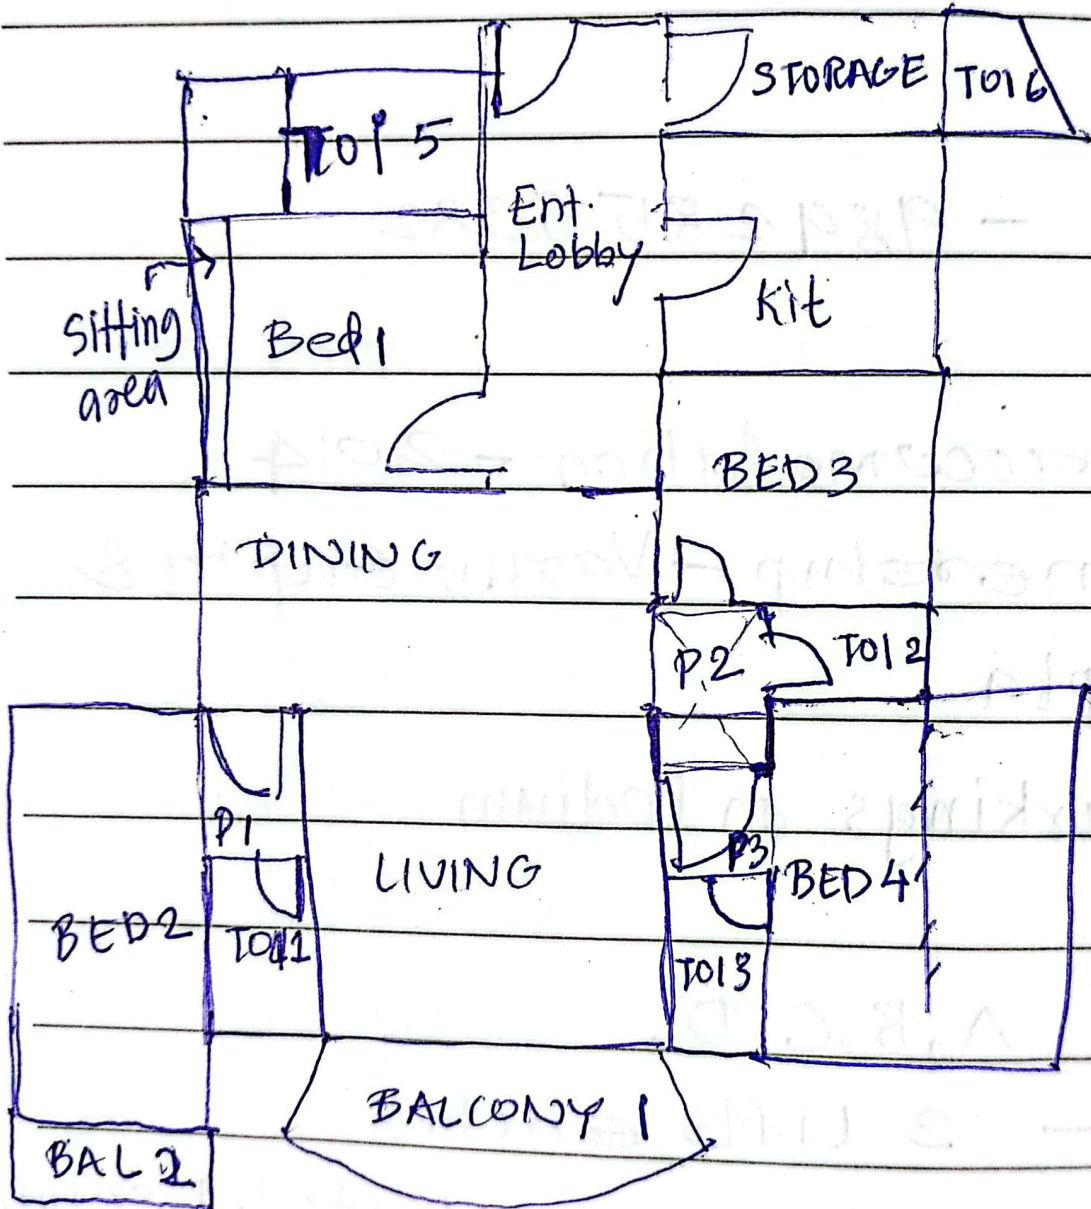 STORAGE
TOI 6
TOI 5
Ent.
Lobby
Sitting
area
Bed 1
Kit
BED 3
DINING
P.2
TOI 2
P1
P3
LIVING
BED 4
BED 2
TOI 1
TOI 3
BALCONY 1
BAL 2